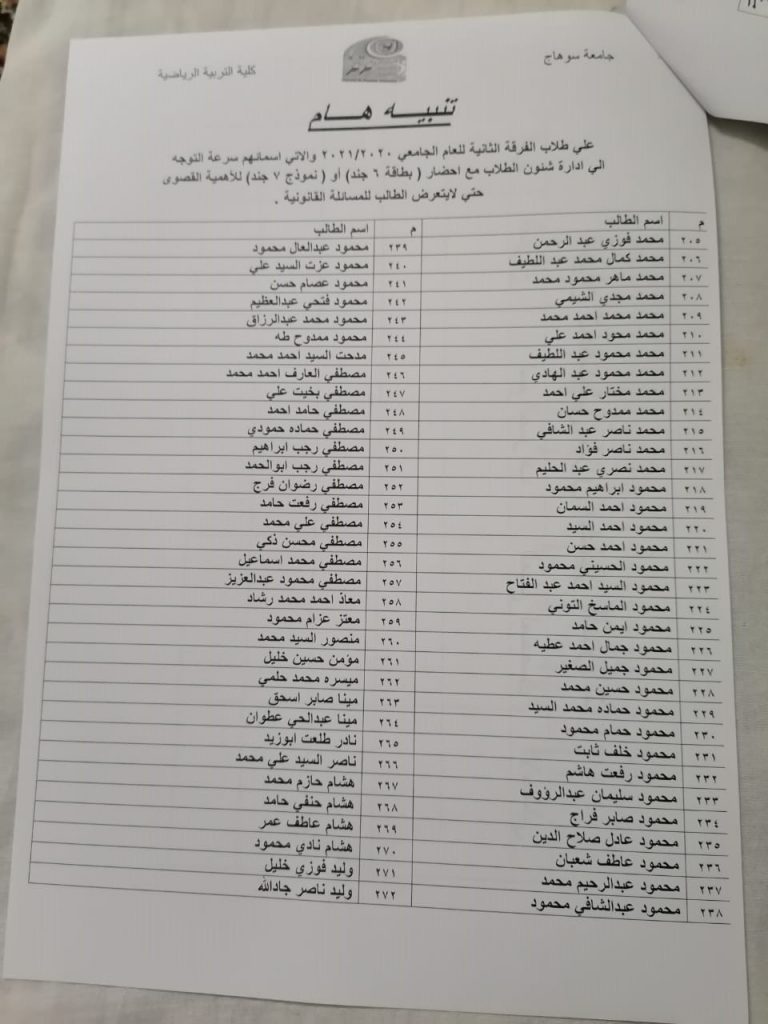 جامعة سوهاج
كلية التربية الرياضية
تنبيه هام
علي طلاب الفرقة الثانية للعام الجامعي ٢٠٢١/٢٠٢٠ والاتي اسمائهم سرعة التوجه
الي ادارة شئون الطلاب مع احضار ( بطاقة ٦ جند) أو ( نموذج ٧ جند) للأهمية القصوى
حتي لايتعرض الطالب للمسائلة القانونية .
م اسم الطالب
٢٠٥ محمد فوزي عبد الرحمن
٢٠٦ محمد كمال محمد عبد اللطيف
٢٠٧ محمد ماهر محمود محمد
٢٠٨ محمد مجدي الشيمي
٢٠٩ محمد محمد احمد محمد
٢١٠ محمد محود احمد علي
٢١١ محمد محمود عبد اللطيف
٢١٢ محمد محمود عبد الهادي
٢١٣ محمد مختار علي احمد
٢١٤ محمد ممدوح حسان
٢١٥ محمد ناصر عبد الشافي
٢١٦ محمد ناصر فؤاد
٢١٧ محمد نصري عبد الحليم
٢١٨ محمود ابراهيم محمود
٢١٩ محمود احمد السمان
٢٢٠ محمود احمد السيد
٢٢١ محمود احمد حسن
٢٢٢ محمود الحسيني محمود
٢٢٣ محمود السيد احمد عبد الفتاح
٢٢٤ محمود الماسخ التوني
٢٢٥ محمود ايمن حامد
٢٢٦ محمود جمال احمد عطيه
٢٢٧ محمود جميل الصغير
٢٢٨ محمود حسين محمد
٢٢٩ محمود حماده محمد السيد
٢٣٠ محمود حمام محمود
٢٣١ محمود خلف ثابت
٢٣٢ محمود رفعت هاشم
٢٣٣ محمود سليمان عبدالرؤوف
٢٣٤ محمود صابر فراج
٢٣٥ محمود عادل صلاح الدين
٢٣٦ محمود عاطف شعبان
٢٣٧ محمود عبدالرحيم محمد
٢٣٨ محمود عبدالشافي محمود
م اسم الطالب
٢٣٩ محمود عبدالعال محمود
٢٤٠ محمود عزت السيد علي
٢٤١ محمود عصام حسن
٢٤٢ محمود فتحي عبدالعظيم
٢٤٣ محمود محمد عبدالرزاق
٢٤٤ محمود ممدوح طه
٢٤٥ مدحت السيد احمد محمد
٢٤٦ مصطفي العارف احمد محمد
٢٤٧ مصطفي بخيت علي
٢٤٨ مصطفي حامد احمد
٢٤٩ مصطفي حماده حمودي
٢٥٠ مصطفي رجب ابراهيم
٢٥١ مصطفي رجب ابوالحمد
٢٥٢ مصطفي رضوان فرج
٢٥٣ مصطفي رفعت حامد
٢٥٤ مصطفي علي محمد
٢٥٥ مصطفي محسن ذكي
٢٥٦ مصطفي محمد اسماعيل
٢٥٧ مصطفي محمود عبدالعزيز
٢٥٨ معاذ احمد محمد رشاد
٢٥٩ معتز عزام محمود
٢٦٠ منصور السيد محمد
٢٦١ مؤمن حسين خليل
٢٦٢ ميسره محمد حلمي
٢٦٣ مينا صابر اسحق
٢٦٤ مينا عبدالحي عطوان
٢٦٥ نادر طلعت ابوزيد
٢٦٦ ناصر السيد علي محمد
٢٦٧ هشام حازم محمد
٢٦٨ هشام حنفي حامد
٢٦٩ هشام عاطف عمر
٢٧٠ هشام نادي محمود
٢٧١ وليد فوزي خليل
٢٧٢ وليد ناصر جادالله